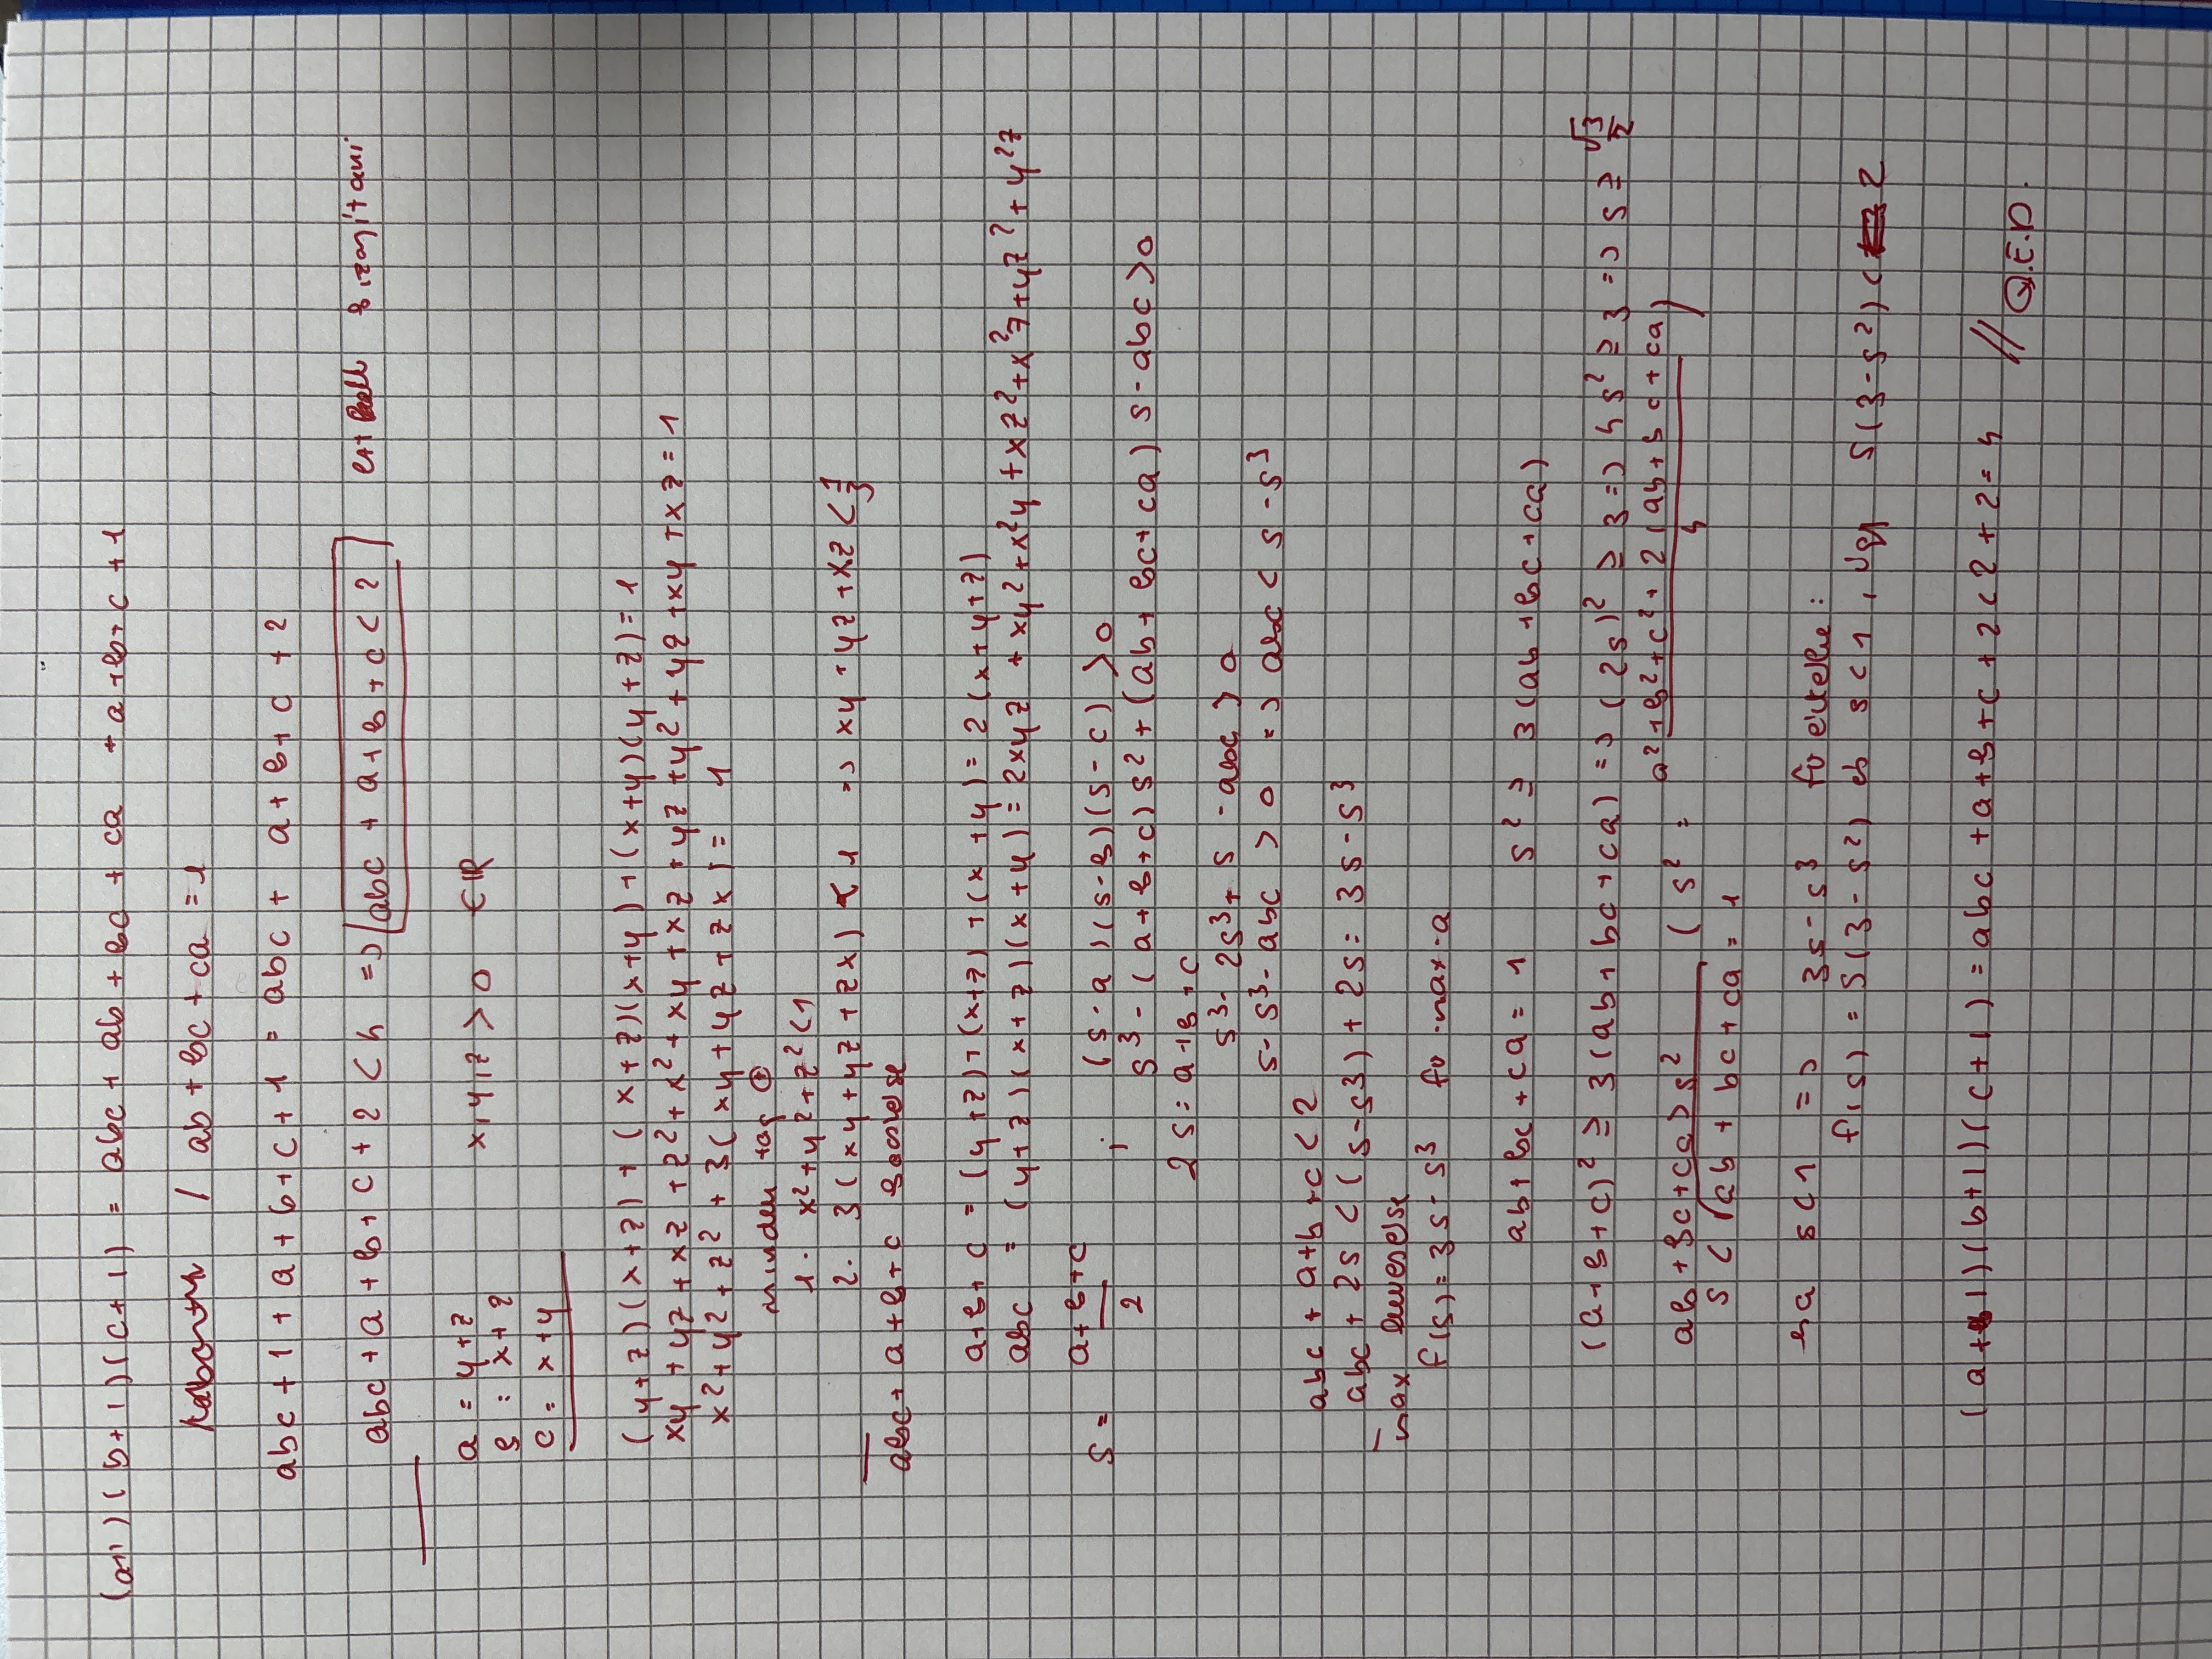 (a+1)(b+1)(c+1) = abc + ab + bc + ca + a+b+c +1
/ ab + bc + ca = 1
abc + 1 + a + b + c + 1 = abc + a + b + c + 2
abc + a + b + c + 2 < 4 => abc + a + b + c < 2 ezt kell bizonyítani
a = y+z
b = x+z x,y,z > 0 ∈ℝ
c = x+y
(y+z)(x+z) + (x+z)(x+y) + (x+y)(y+z) = 1
xy + yz + xz + z² + x² + xy + xz + yz + y² + yz + xy + xz = 1
x² + y² + z² + 3(xy + yz + zx) = 1
minden tag ⊕
1. x²+y²+z² < 1
2. 3(xy + yz + zx) < 1 => xy + yz + xz < 1/3
abc + a+b+c
a+b+c = (y+z)+(x+z)+(x+y) = 2(x+y+z)
abc = (y+z)(x+z)(x+y) = 2xyz + xy² + x²y + xz² + x²z + yz² + y²z
s = a+b+c / 2 ; (s-a)(s-b)(s-c) > 0
s³ - (a+b+c)s² + (ab+bc+ca)s - abc > 0
2s = a+b+c
s³ - 2s³ + s - abc > 0
s - s³ - abc > 0 => abc < s - s³
abc + a+b+c < 2
abc + 2s < (s-s³) + 2s = 3s - s³
max keresése
f(s) = 3s - s³
ab + bc + ca = 1 s² ≥ 3(ab + bc + ca)
(a+b+c)² ≥ 3(ab+bc+ca) => (2s)² ≥ 3 => 4s² ≥ 3 => s ≥ √3/2
ab + bc + ca > s² (s² = a²+b²+c²+2(ab+bc+ca) / 4)
s < √ab + bc + ca = 1
ha s<1 => 3s - s³ fv értéke:
f(s) = s(3-s²) és s<1, így s(3-s²) < 2
(a+1)(b+1)(c+1) = abc + a+b+c + 2 < 2+2 = 4 // Q.E.D.